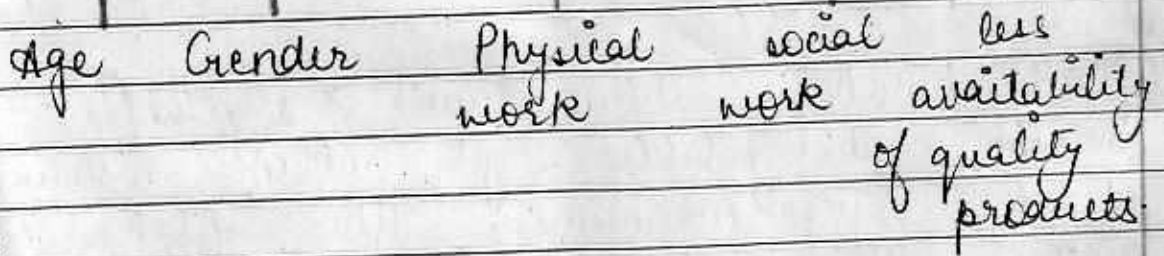 Age Gender Physical social less
work work availability
of quality
products.